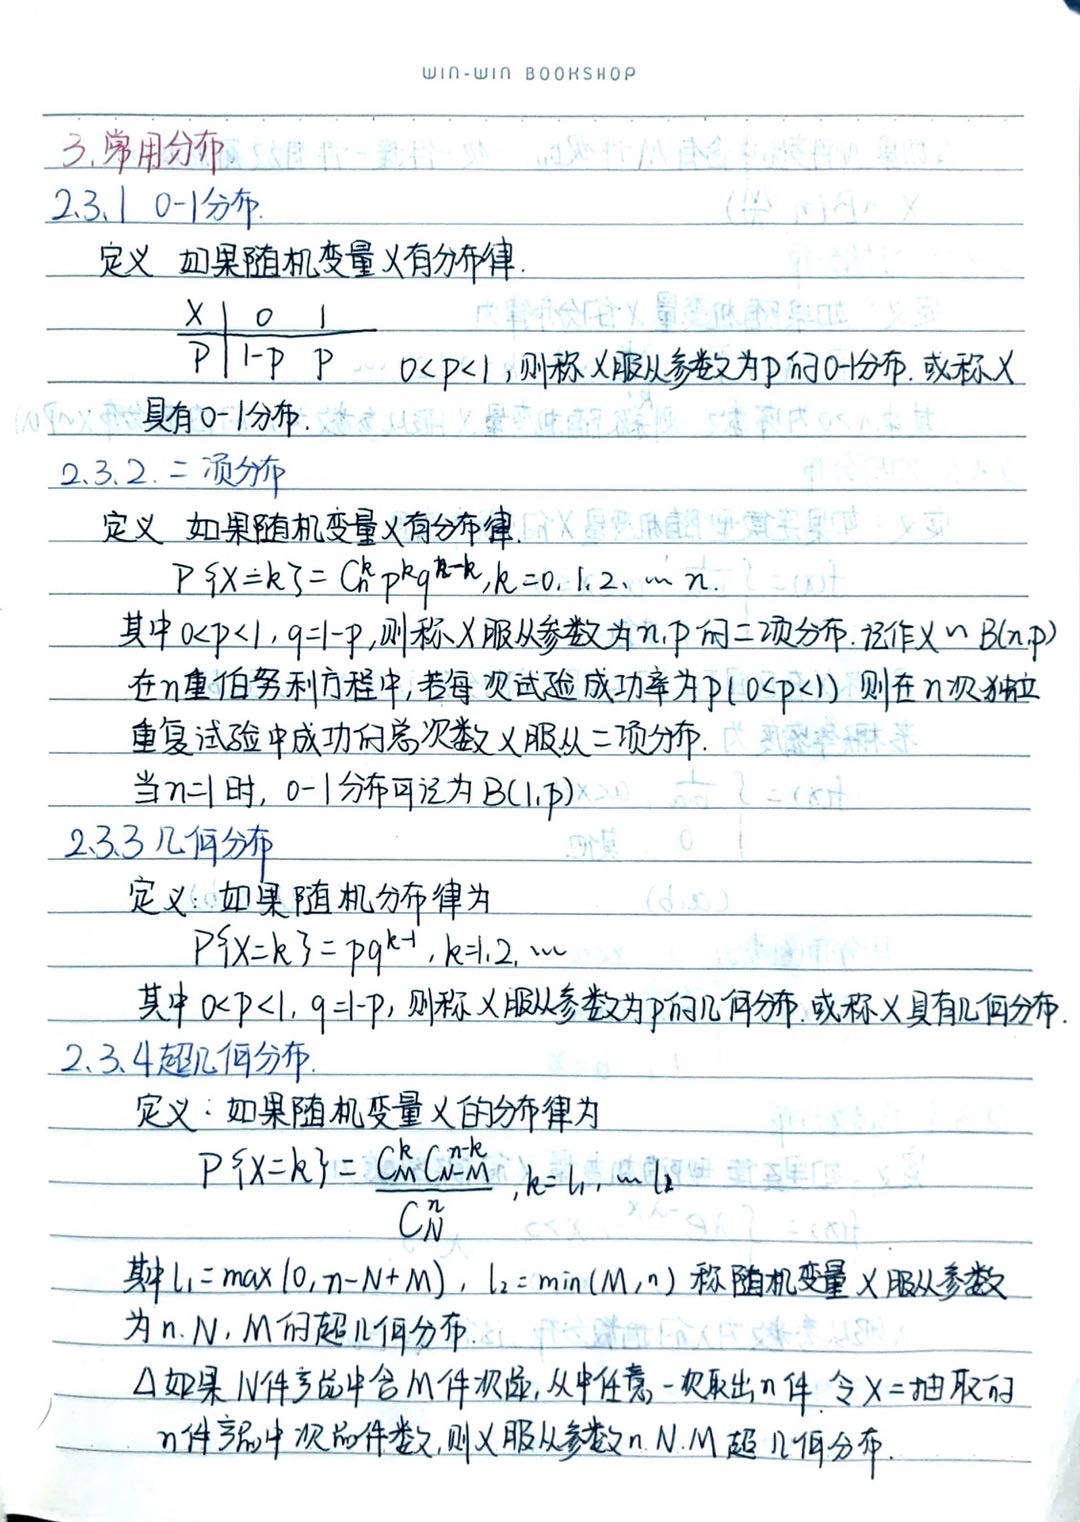 WIN-WIN BOOKSHOP
3.常用分布
2.3.1 0-1分布.
定义 如果随机变量X有分布律.
X | 0 1
P | 1-p p 0<p<1,则称X服从参数为p的0-1分布.或称X
具有0-1分布.
2.3.2.二项分布
定义 如果随机变量X有分布律.
P{X=k}=C_n^k p^k q^{n-k},k=0,1,2,…n.
其中0<p<1,q=1-p,则称X服从参数为n,p的二项分布.记作X~B(n,p)
在n重伯努利方程中,若每次试验成功率为p(0<p<1) 则在n次独立
重复试验中成功的总次数X服从二项分布.
当n=1时, 0-1分布可记为B(1,p)
2.3.3几何分布
定义:如果随机分布律为
P{X=k}=pq^{k-1},k=1,2,…
其中0<p<1,q=1-p,则称X服从参数为p的几何分布.或称X具有几何分布.
2.3.4超几何分布.
定义:如果随机变量X的分布律为
P{X=k}=\frac{C_M^k C_{N-M}^{n-k}}{C_N^n},k=l_1,…l_2
其中l_1=max(0,n-N+M),l_2=min(M,n) 称随机变量X服从参数
为n.N,M的超几何分布.
△如果N件产品中含M件次品,从中任意一次取出n件.令X=抽取的
n件产品中次品件数,则X服从参数n.N.M超几何分布.